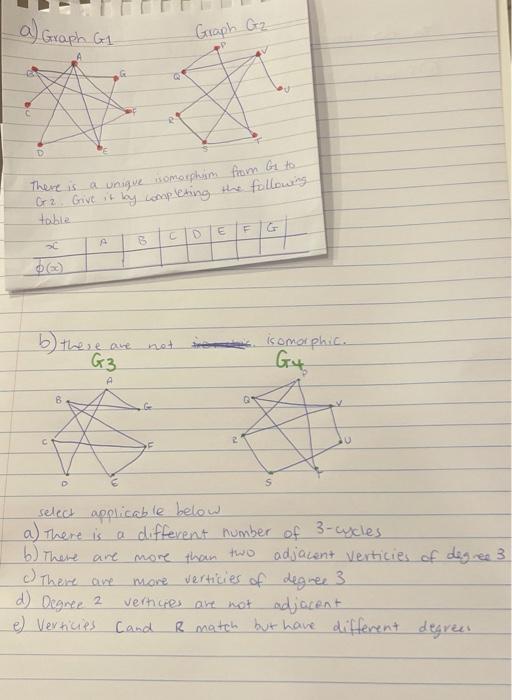 a) Graph G1 Graph G2
A
B
G
C
F
D
E
P
V
Q
U
R
S
T
There is a unique isomorphism from G1 to
G2. Give it by completing the following
table
x A B C D E F G
ϕ(x)
b) these are not isomorphic.
G3 G4
A
B
G
C
F
D
E
P
Q
V
R
U
S
T
select applicable below
a) There is a different number of 3-cycles
b) There are more than two adjacent verticies of degree 3
c) There are more verticies of degree 3
d) Degree 2 verticies are not adjacent
e) Verticies C and R match but have different degrees